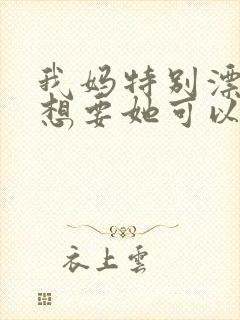 我妈特别漂
想要她可以
衣上雲